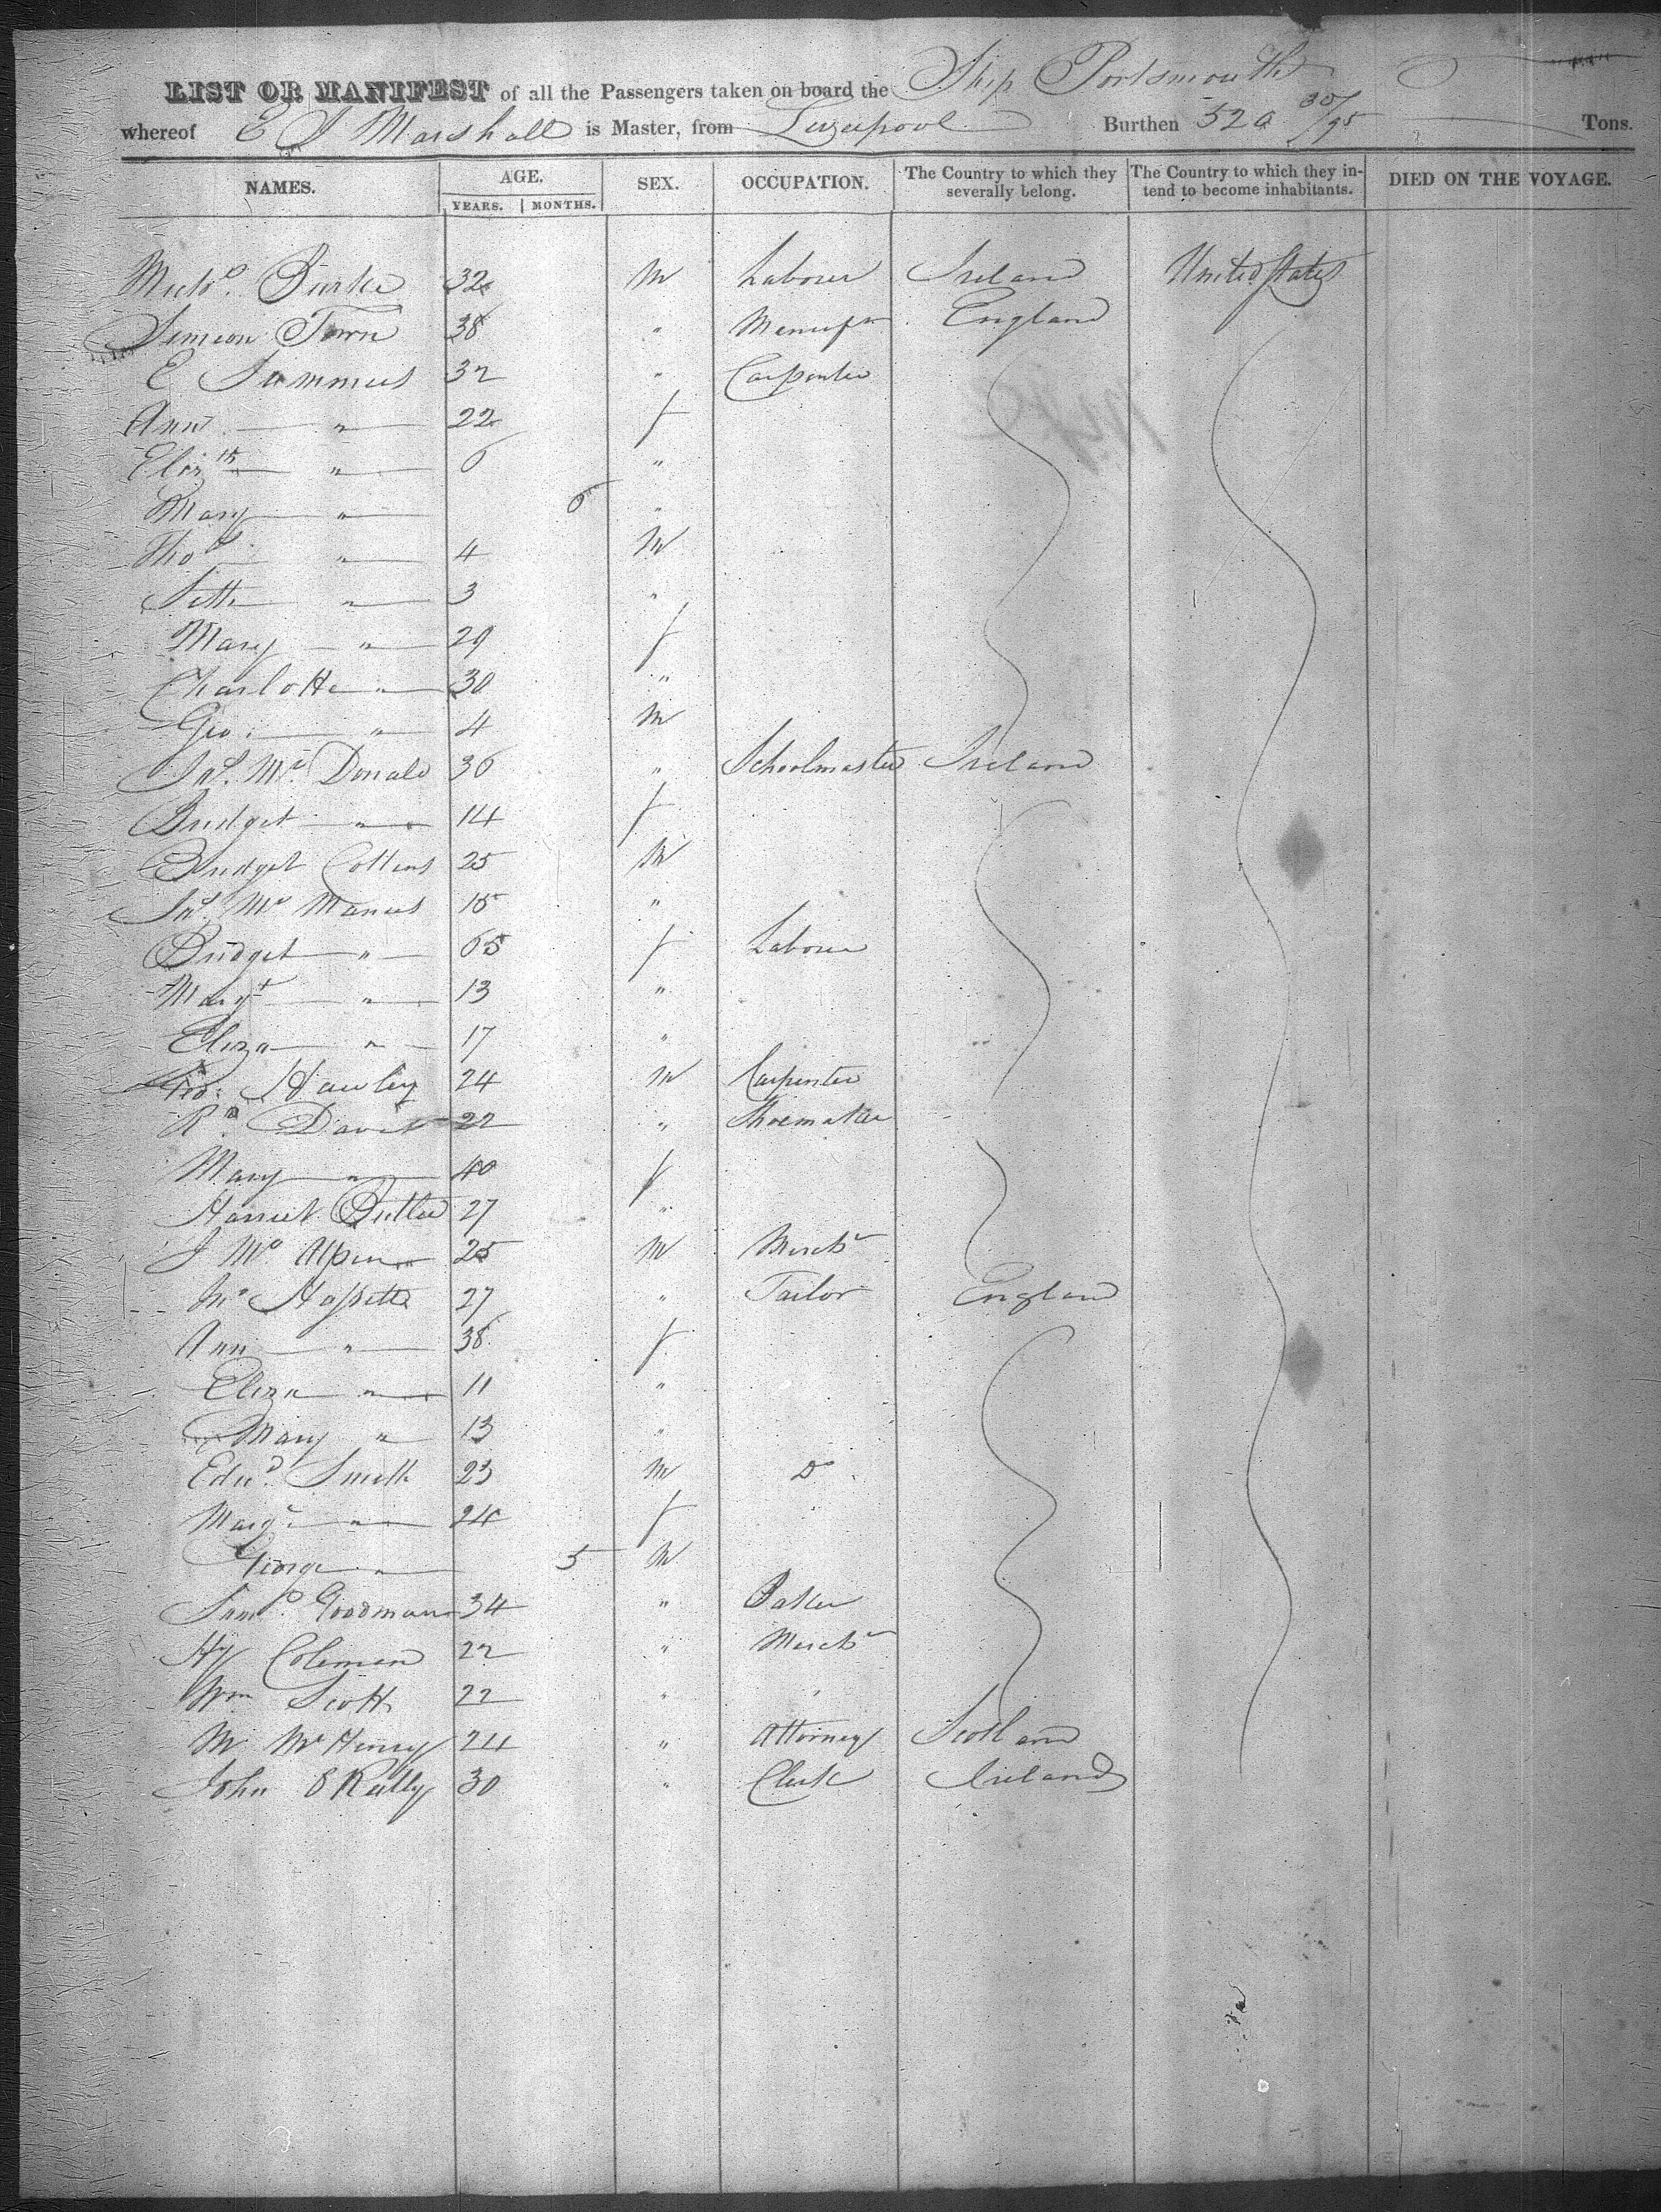 LIST OR MANIFEST of all the Passengers taken on board the Ship Portsmouth
whereof E J Marshall is Master, from Liverpool Burthen 520 30/95 Tons.
NAMES. AGE. SEX. OCCUPATION. The Country to which they severally belong. The Country to which they intend to become inhabitants. DIED ON THE VOYAGE.
YEARS. MONTHS.
Michl. Burke 32 M Labourer Ireland United States
Simeon Town 38 " Manufr England
E Summers 32 " Carpenter
Ann " 22 f
Elizth " 6 "
Mary " 6 "
Thos " 4 M
Seth " 3 "
Mary " 29 f
Charlotte " 30 "
Geo: " 4 M
Jno. Mc Donald 36 " Schoolmaster Ireland
Bridget " 14 f
Bridget Collins 25 M
Jno. Mc Manus 18 "
Bridget " 65 f Labourer
Margt " 13 "
Eliza " 17 "
Geo: Hawley 24 M Carpenter
Rd. Davis 22 " Shoemaker
Mary " 40 f
Harriet Butler 27 "
J Mc Alpin 25 M Mercht
27 " Tailor England
Ann " 38 f
Eliza " 11 "
Mary " 13 "
Edwd. Smith 23 M Do
Margt " 24 f
George " 5 M
Saml. Goodman 34 " Baker
Hy Coleman 22 " Mercht
Wm Scott 22 " "
M McHenry 24 " Attorney Scotland
John O Reilly 30 " Clerk Ireland